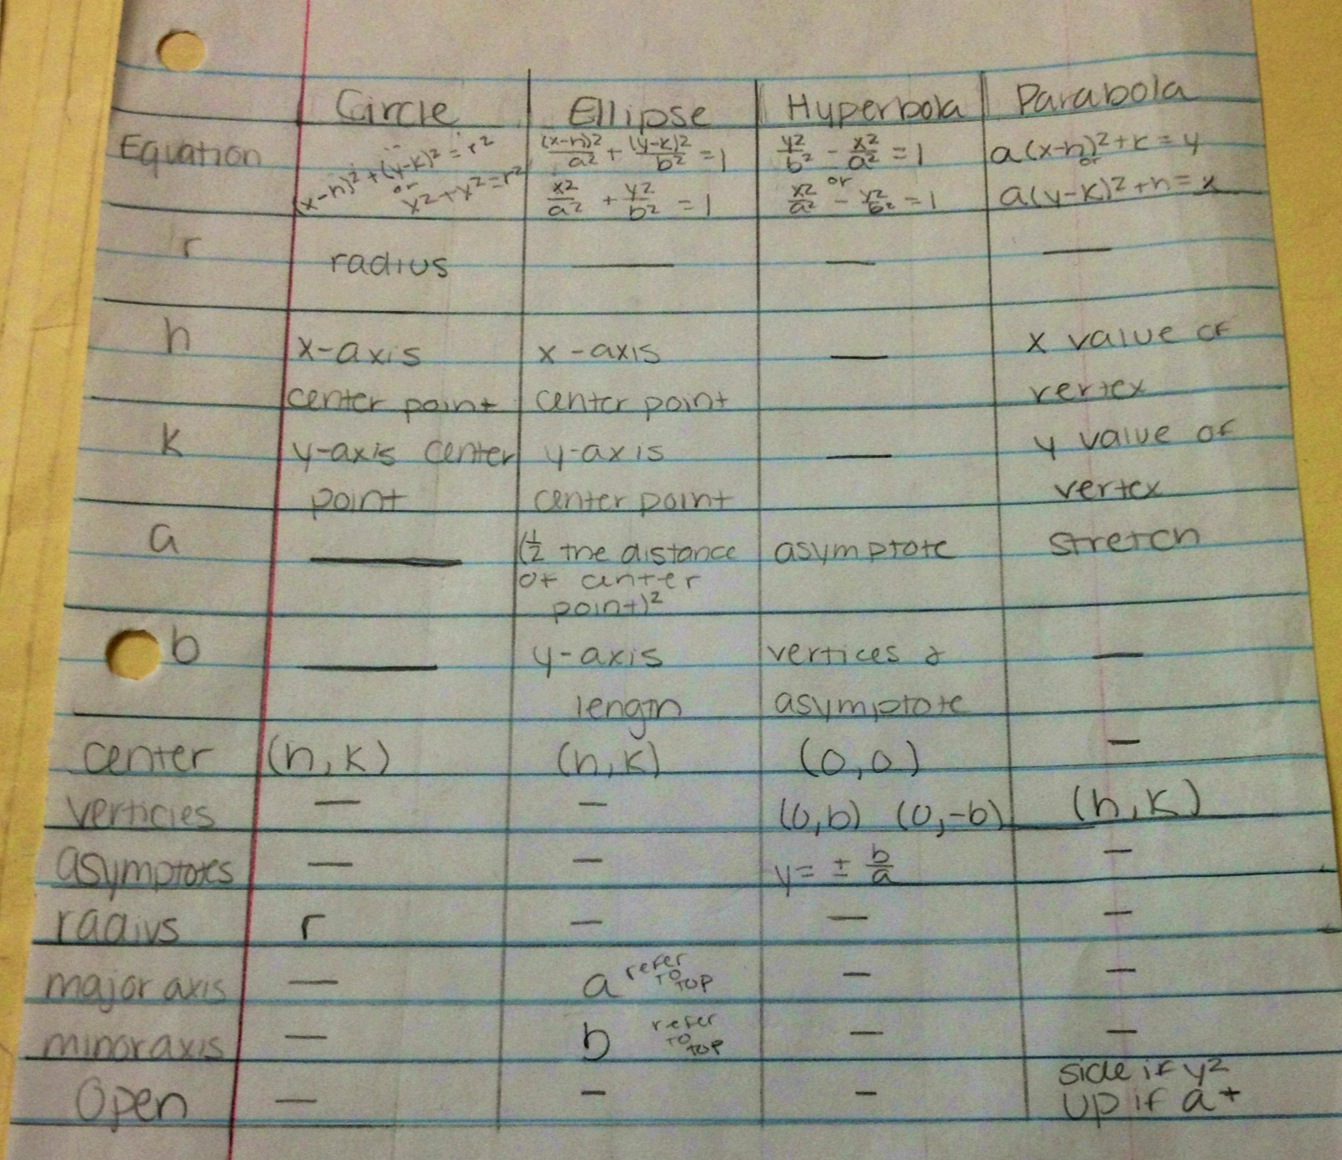 Circle Ellipse Hyperbola Parabola
Equation (x-h)²+(y-k)²=r² or x²+y²=r² (x-h)²/a² + (y-k)²/b² = 1 x²/a² + y²/b² = 1 y²/b² - x²/a² = 1 or x²/a² - y²/b² = 1 a(x-h)²+k=y or a(y-k)²+h=x
r radius — — —
h x-axis center point x-axis center point — x value of vertex
k y-axis center point y-axis center point — y value of vertex
a — (½ the distance of center point)² asymptote stretch
b — y-axis length vertices & asymptote —
center (h,k) (h,k) (0,0) —
verticies — — (0,b) (0,-b) (h,k)
asymptotes — — y= ± b/a —
radius r — — —
major axis — a refer to top — —
minor axis — b refer to top — —
Open — — — side if y² up if a +